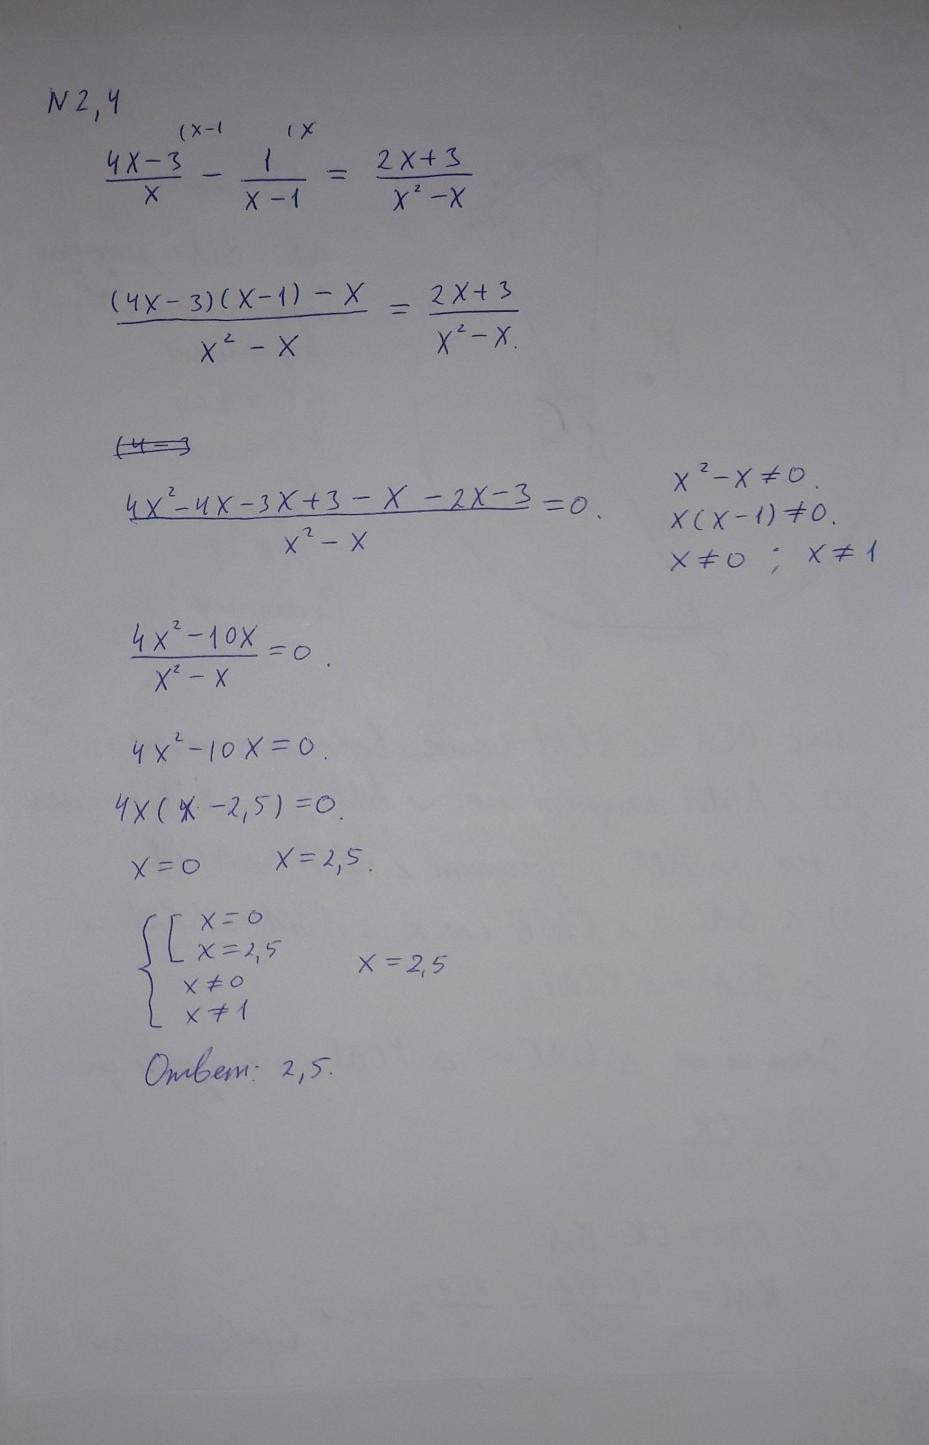 N 2,4
(x-1 (x
4x-3/x - 1/x-1 = 2x+3/x²-x
(4x-3)(x-1)-x/x²-x = 2x+3/x²-x.
(4-3
4x²-4x-3x+3-x-2x-3/x²-x =0.
x²-x≠0.
x(x-1)≠0.
x≠0 ; x≠1
4x²-10x/x²-x =0.
4x²-10x=0.
4x(x-2,5)=0.
x=0 x=2,5.
{ [ x=0
x=2,5
x≠0
x≠1
x=2,5
Ответ: 2,5.